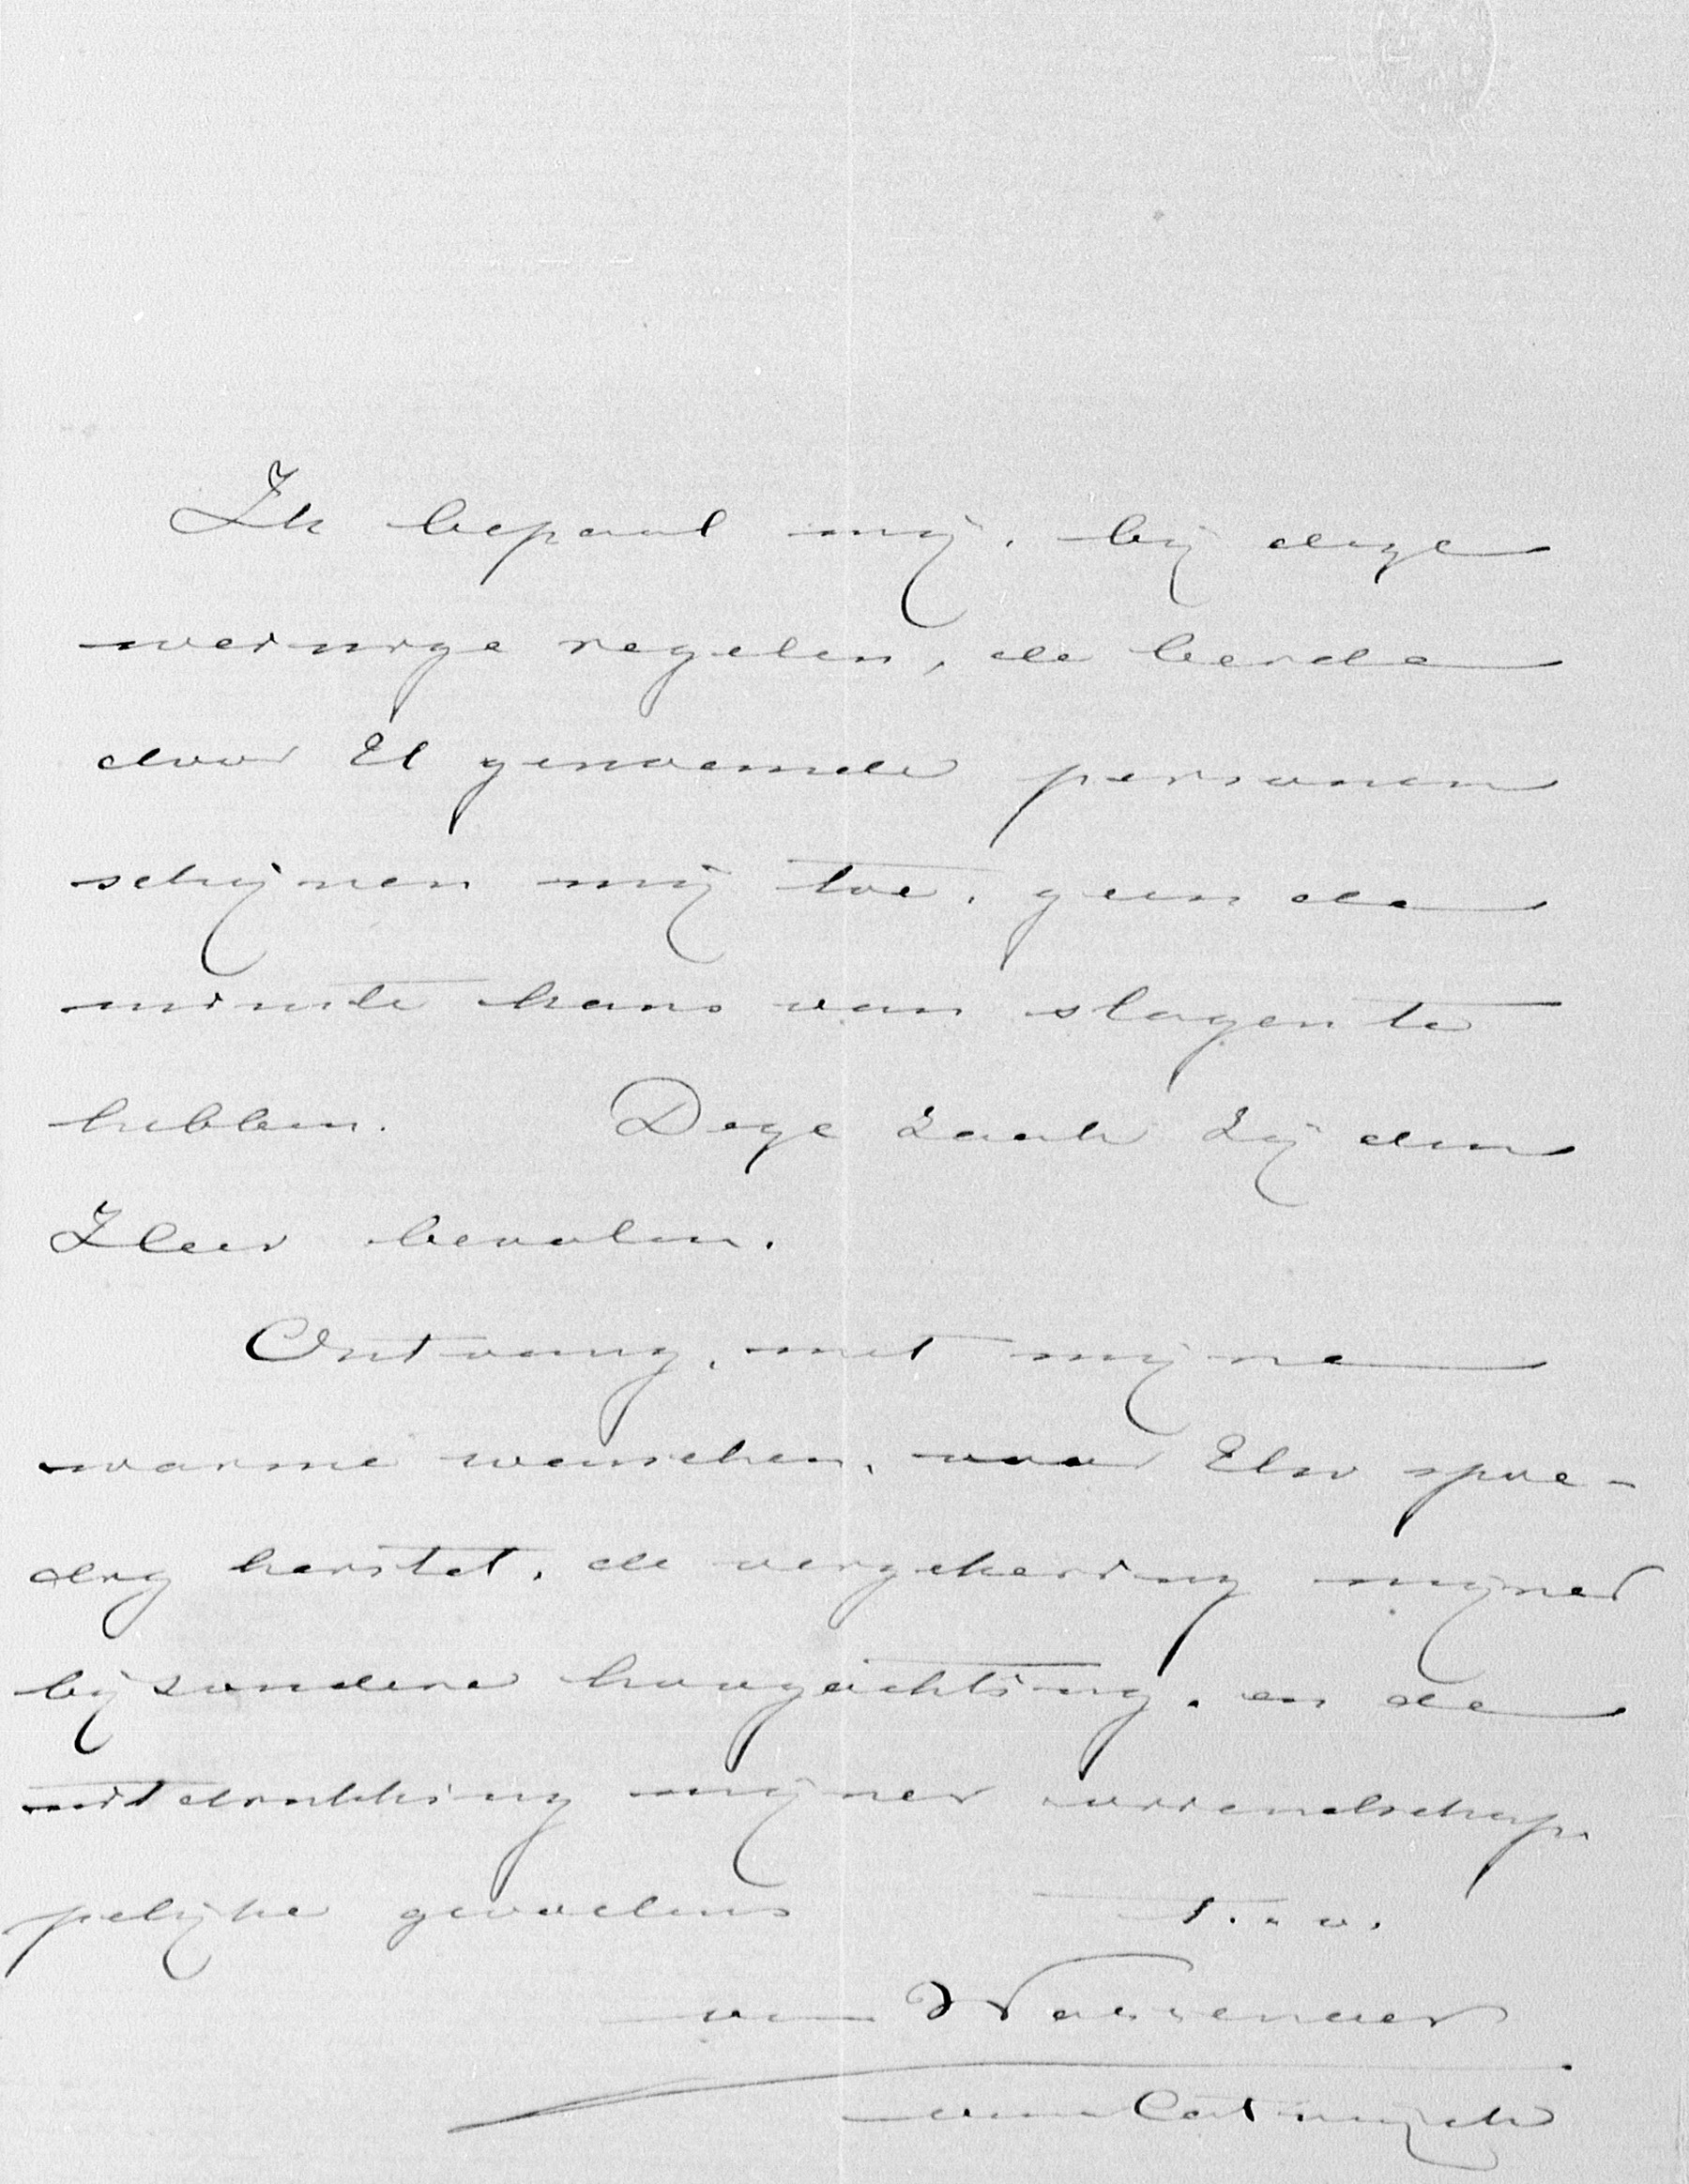 Ik bepaal mij, bij deze
weinige regelen, de beide
door U genoemde personen
schijnen mij toe, geen de
minste kans van slagen te
hebben. Deze zaak zij den
Heer bevolen.
Ontvang, met mijne
warme wenschen, voor Uw spoe-
dig herstel, de verzekering mijner
bijzondere hoogachting, en de
uitdrukking mijner vriendschap-
pelijke gevoelens T.. v.
van Wassenaer
van Catwijck